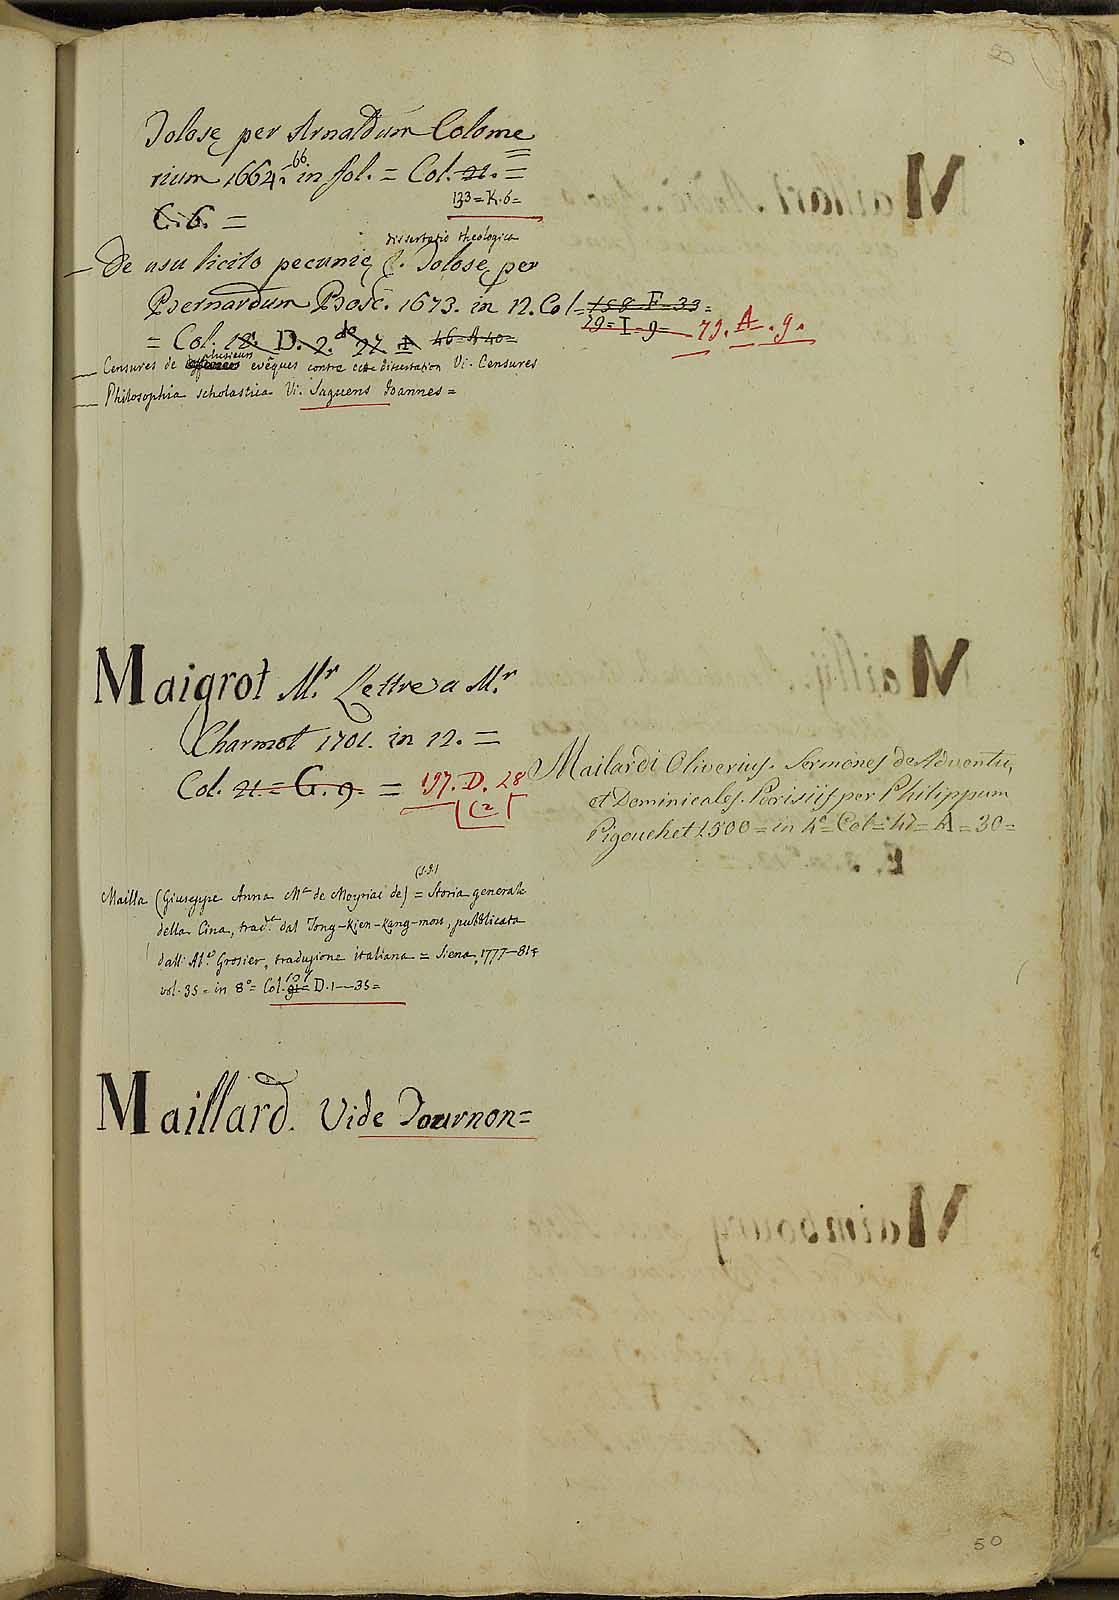 Tolosę per Arnaldum Colome
rium 1664. 66. in fol. = Col. 21. =
133 = K. 6 =
C. 6. =
dissertatio theologica
— De usu licito pecunię &. Tolosę per
Bernardum Bosc. 1673. in 12. Col = 158 F = 33 =
29 = I = 9 = 79. A. 9.
= Col. 18. D. 2. de 27 A 46 = A 40 =
— Censures de plusieurs evêques contre cette dissertation Vi. Censures
— Philosophia scholastica Vi. Saguens Ioannes =
Maigrot Mr. Lettre a Mr.
Charmot 1701. in 12. =
Col. 21. = G. 9. = 197. D. 28
(2)
Mailardi Oliverius. Sermones de Adventu,
et Dominicales. Parisiis per Philippum
Pigouchet 1500 = in 4º Col = 47 = A = 30 =
(S.J.)
Mailla (Giuseppe Anna Mª de Moyriac de) = Storia generale
della Cina, trad.ª dal Tong-Kien-Kang-mou, pubblicata
dall' Ab.e Grosier, traduzione italiana = Siena, 1777-81 =
vol. 35 = in 8º = Col. 91 = D. 1—35 =
Maillard. Vide Tournon =
50